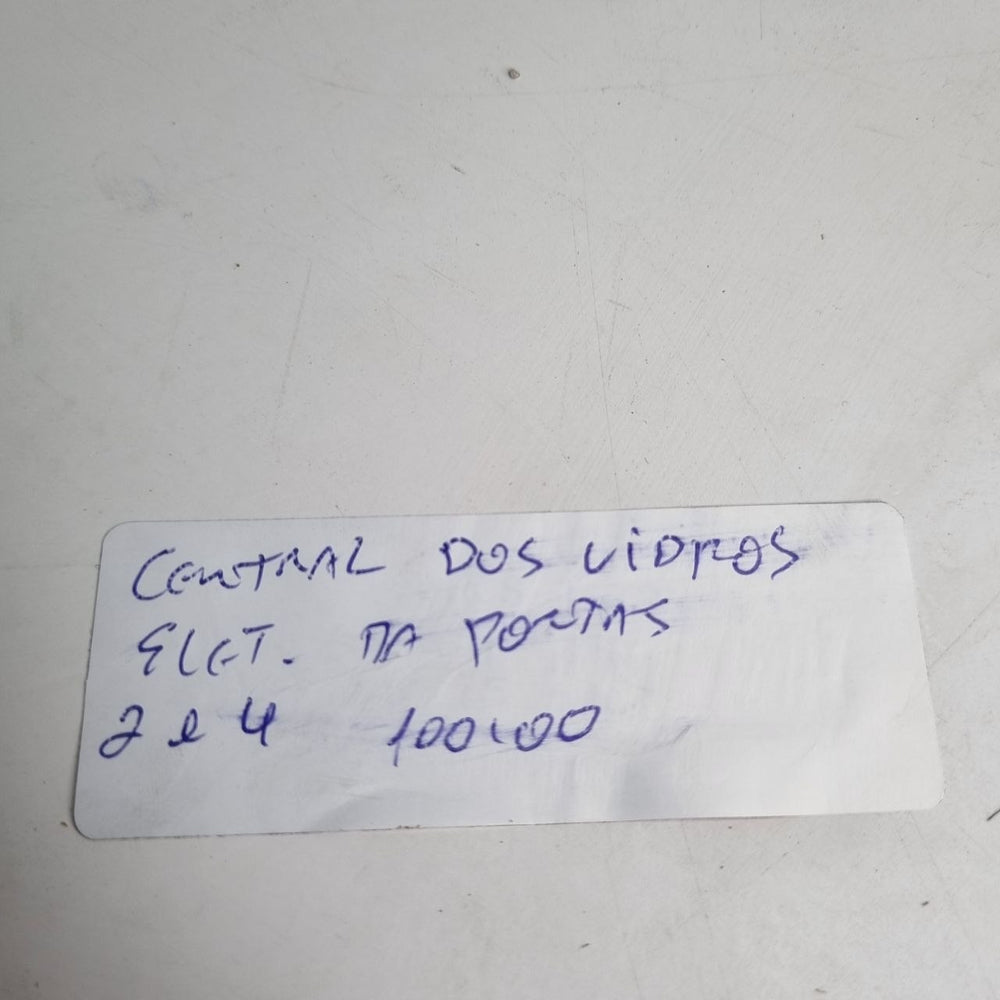 CENTRAL DOS VIDROS
ELET. DA PORTAS
2 e 4 100,00